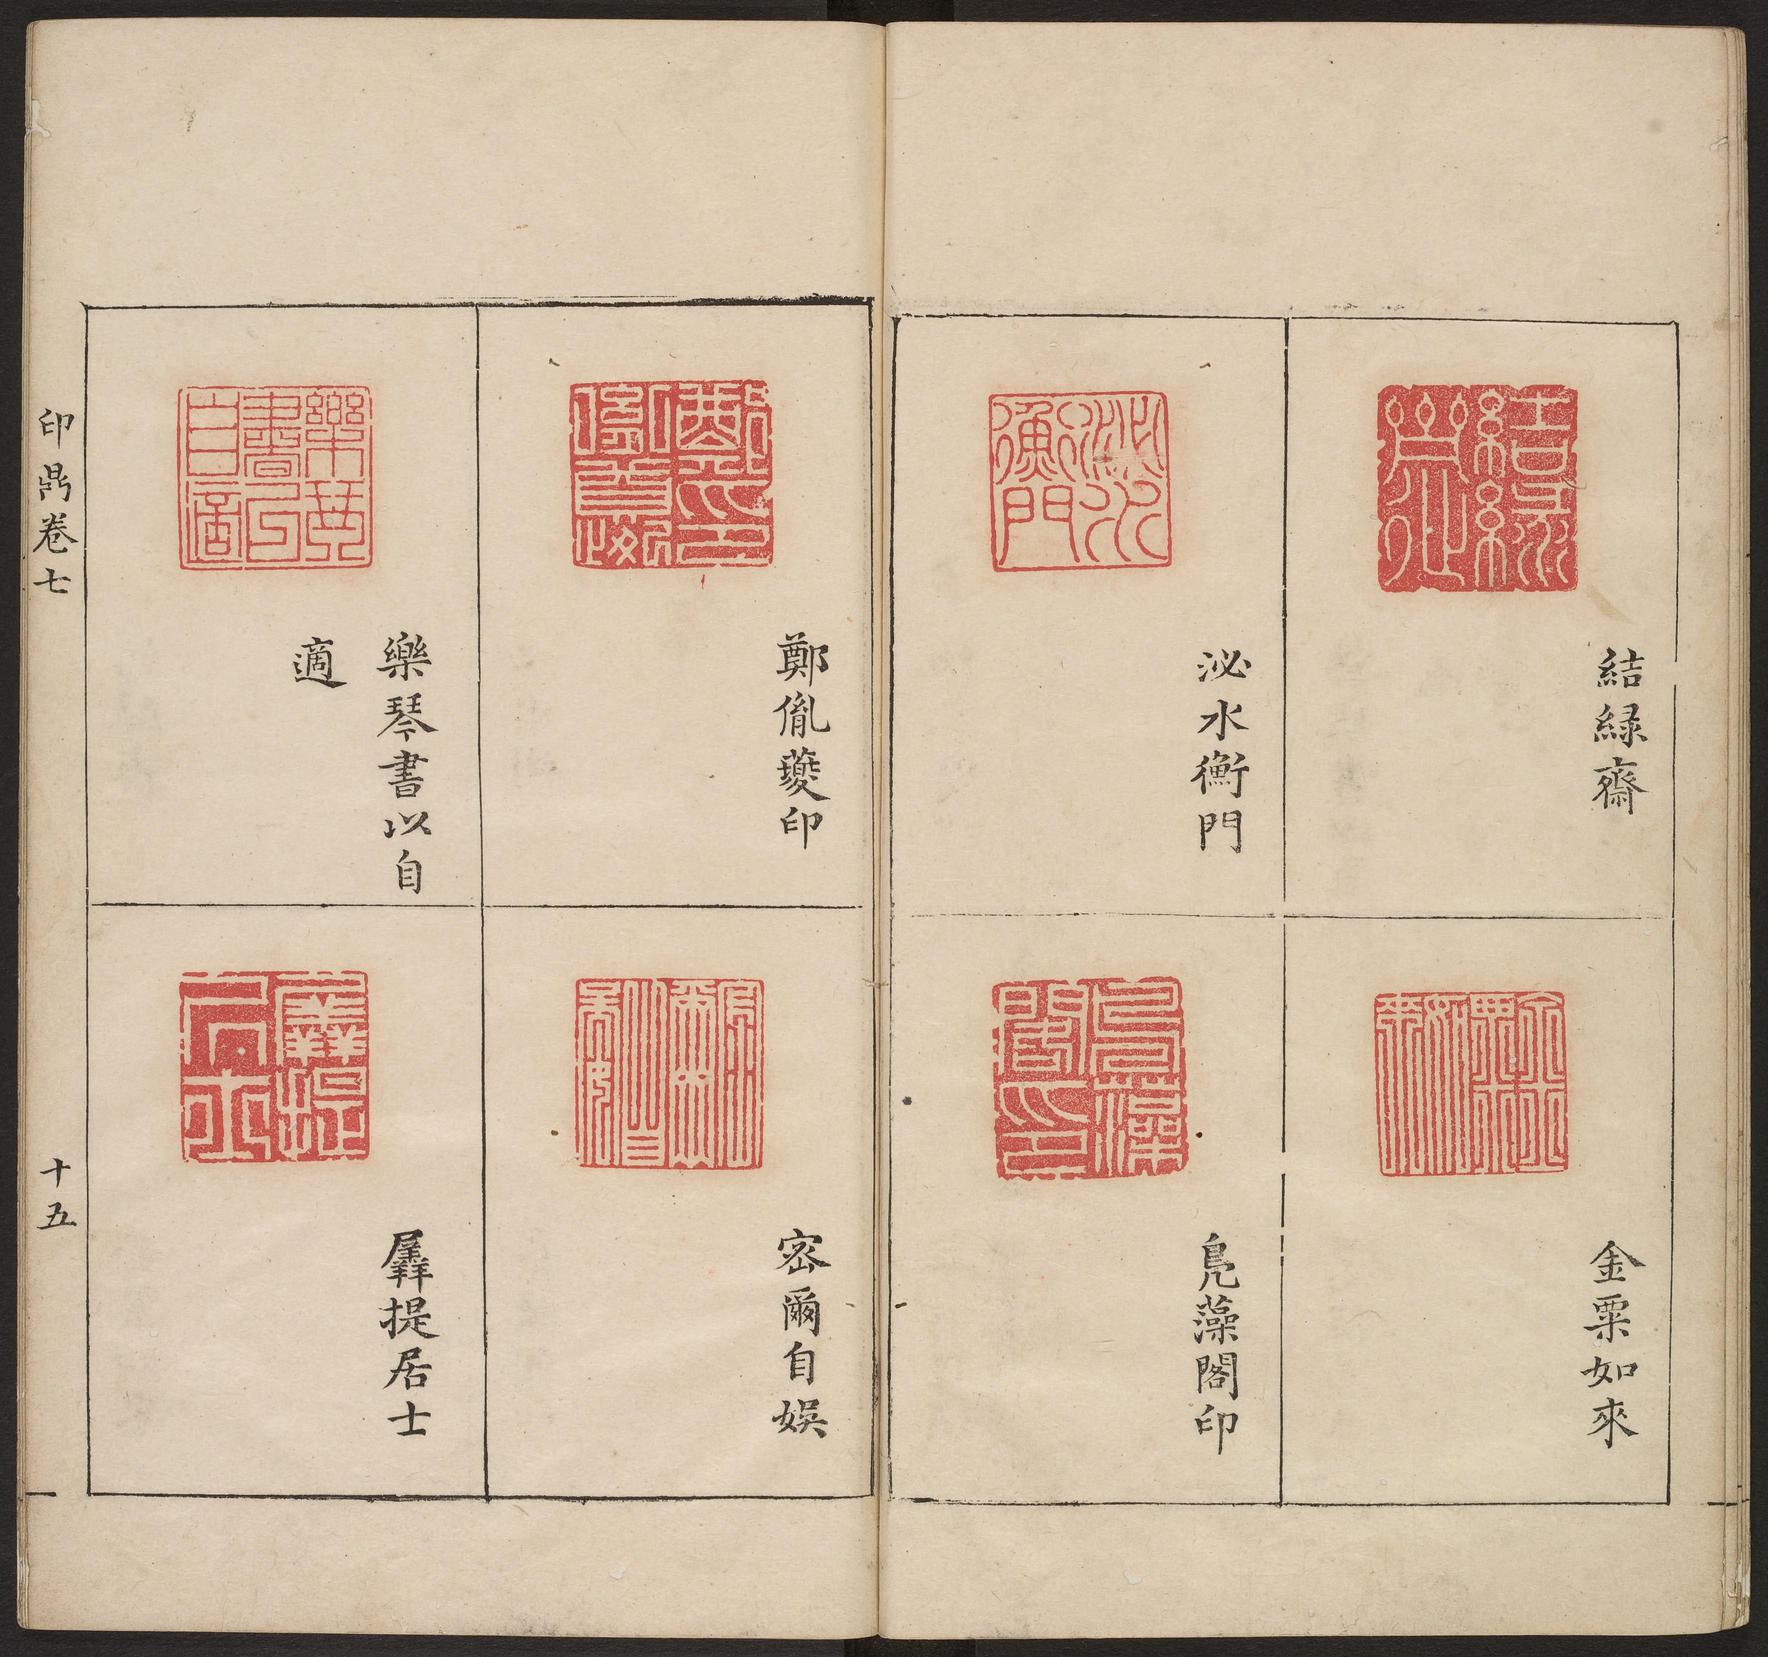 結綠齋
金粟如來
泌水衡門
鳧藻閣印
鄭胤夔印
密爾自娛
樂琴書以自
適
羼提居士
印鼎卷七
十五